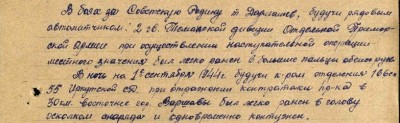 В боях за Советскую Родину т. Варлашев, будучи рядовым
автоматчиком 2 гв. Таманской дивизии Отдельной Примор-
ской Армии при осуществлении наступательной операции
местного значения был легко ранен в большие пальцы обеих рук.
В ночь на 1е сентября 1944г. будучи к-ром отделения 166 сп
55 Иркутской СД, при отражении контратаки пр-ка в
30км. восточнее гор. Варшавы был легко ранен в голову
осколком снаряда и одновременно контужен.